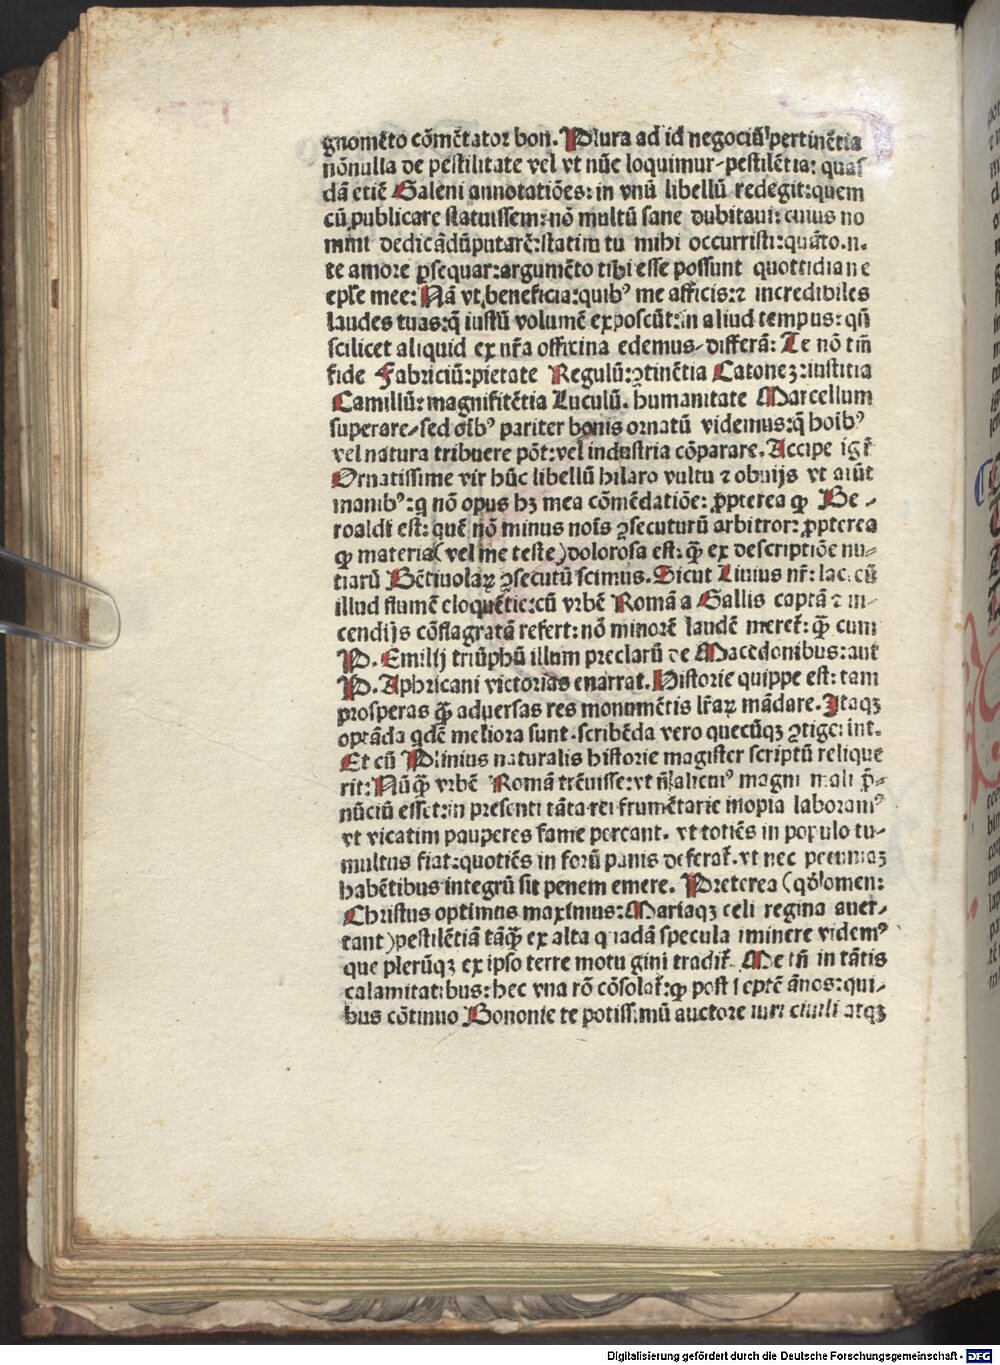 gnomēto cōmētator bon. Plura ad id negociū pertinētia
nōnulla de pestilitate vel vt nūc loquimur-pestilētia: quas
dā etiē Galeni annotatiōes: in vnū libellū redegit:quem
cū publicare statuissem: nō multū sane dubitaui: cuius no
mini dedicādū putarē: statim tu mihi occurristi: quāto.n.
te amore ꝓsequar: argumēto tibi esse possunt quottidiane
ep̄le mee: Nā vt beneficia: quibꝰ me afficis: ⁊ incredibiles
laudes tuas: q̄ iustū volumē exposcūt: in aliud tempus: qn̄
scilicet aliquid ex nr̄a officina edemus-differā: Te nō tm̄
fide Fabriciū: pietate Regulū: ꝯtinētia Catonez: iustitia
Camillū: magnificētia Luculū. humanitate Marcellum
superare-sed oīb⁹ pariter bonis ornatū videmus: q̄ hoīb⁹
vel natura tribuere pōt: vel industria cōparare. Accipe igr̄
Ornatissime vir hūc libellū hilaro vultu ⁊ obuijs vt aiūt
manibꝰ: q nō opus hꝫ mea cōmēdatiōe: ꝓpterea ꝙ Be-
roaldi est: quē nō minus noīs ꝯsecuturū arbitror: ꝓpterea
ꝙ materia (vel me teste) dolorosa est: q̄ ex descriptiōe nu-
tiarū Bētiuolaꝝ ꝯsecutū scimus. Sicut Liuius nr̄: lac. cū
illud flumē eloquētie: cū vrbē Romā a Gallis captā ⁊ in-
cendijs cōflagratā refert: nō minorē laudē meret̄: q̄ cum
P. Emilij triūphū illum preclarū de Macedonibus: aut
P. Aphricani victorias enarrat. Historie quippe est: tam
prosperas q̄ aduersas res monumētis lr̄aꝝ mādare. Itaqꝫ
optāda qdē meliora sunt. scribēda vero quecūqꝫ ꝯtigerint.
Et cū Plinius naturalis historie magister scriptū relique
rit: Nūq̄ vrbē Romā tremuisse: vt n̄ alicuiꝰ magni mali p̄-
nūciū esset: in presenti tāta rei frumētarie inopia laboramꝰ
vt vicatim pauperes fame pereant. vt totiēs in populo tu-
multus fiat: quotiēs in forū panis deferat̄. vt nec pecuniaꝫ
habētibus integrū sit penem emere. Preterea (qd̄ omen:
Christus optimus maximus: Mariaqꝫ celi regina auer-
tant) pestilētiā tāq̄ ex alta quadā specula iminere videmꝰ
que plerūqꝫ ex ipso terre motu gini tradit̄. Me tn̄ in tātis
calamitatibus: hec vna rō cōsolat̄: ꝙ post septē ānos: qui-
bus cōtinuo Bononie te potissimū auctore iuri ciuili atqꝫ
Digitalisierung gefördert durch die Deutsche Forschungsgemeinschaft - DFG